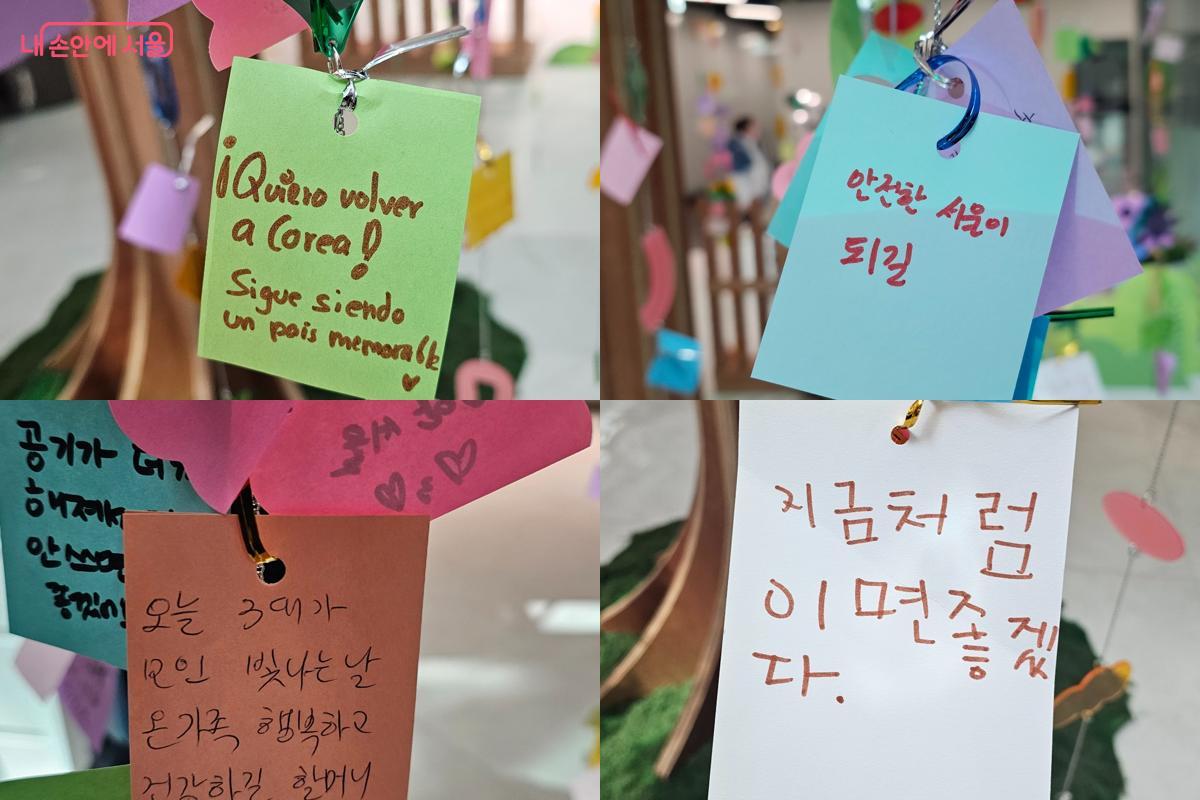 내 손안에 서울
¡Quiero volver
a Corea!
Sigue siendo
un pais memorable
안전한 서울이
되길
공기가
안
오늘 3대가
모인 빛나는 날
온가족 행복하고
건강하길 할머니
지금처럼
이면좋겠
다.